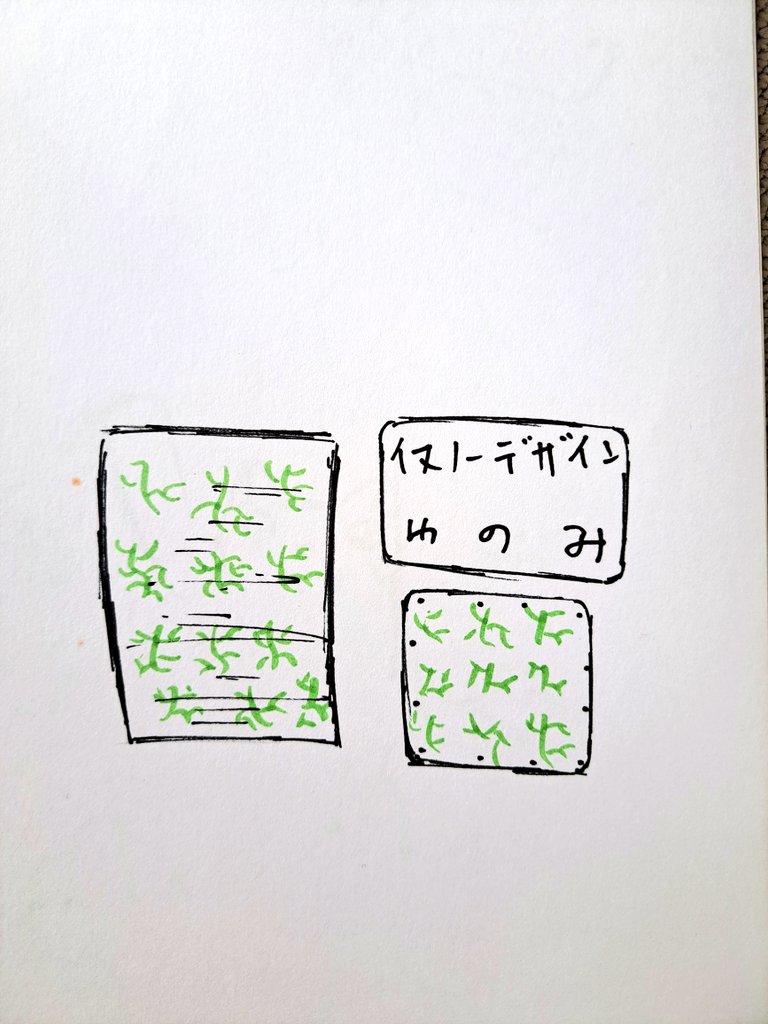 イヌノーデザイン
ゆのみ